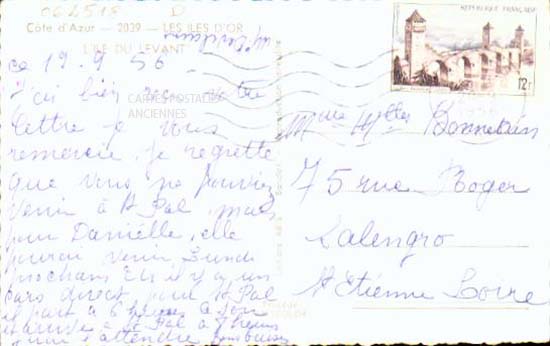 C62515 D
Côte d'Azur - 2039 - LES ILES D'OR
L'ILE DU LEVANT
ce 19.9.56
J'ai bien reçu votre
lettre je vous
remercie. je regrette
que vous ne pouviez
venir à St Pal, mais
pour Danielle, elle
pourra venir lundi
prochain
car direct pour St Pal
il part à 6 heures
St Pal à 7 heures
attendre
CARTES POSTALES
ANCIENNES
REPUBLIQUE FRANÇAISE
12F
Mme Melles Bonnetain
75 rue Roger
Salengro
St Etienne Loire